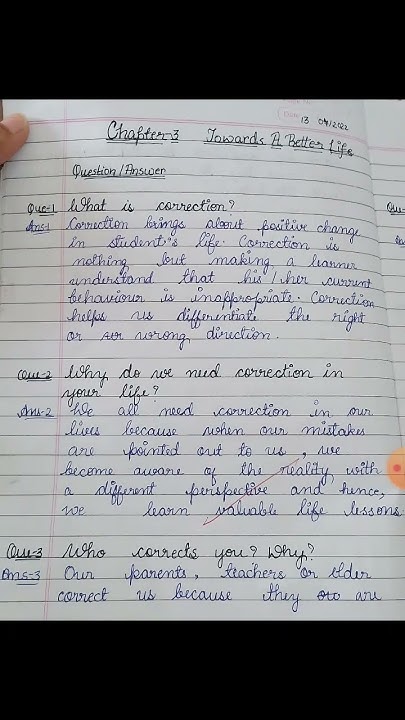 13 04/2022
Chapter-3 Towards A Better Life
Question/Answer
Que-1 What is correction?
Ans-1 Correction brings about positive change
in student's life. Correction is
nothing but making a learner
understand that his/her current
behaviour is inappropriate. Correction
helps us differentiate the right
or wrong direction.
Que-2 Why do we need correction in
your life?
Ans-2 We all need correction in our
lives because when our mistakes
are pointed out to us, we
become aware of the reality with
a different perspective and hence,
we learn valuable life lessons
Que-3 Who corrects you? Why?
Ans-3 Our parents, teachers or elder
correct us because they are
Qu-